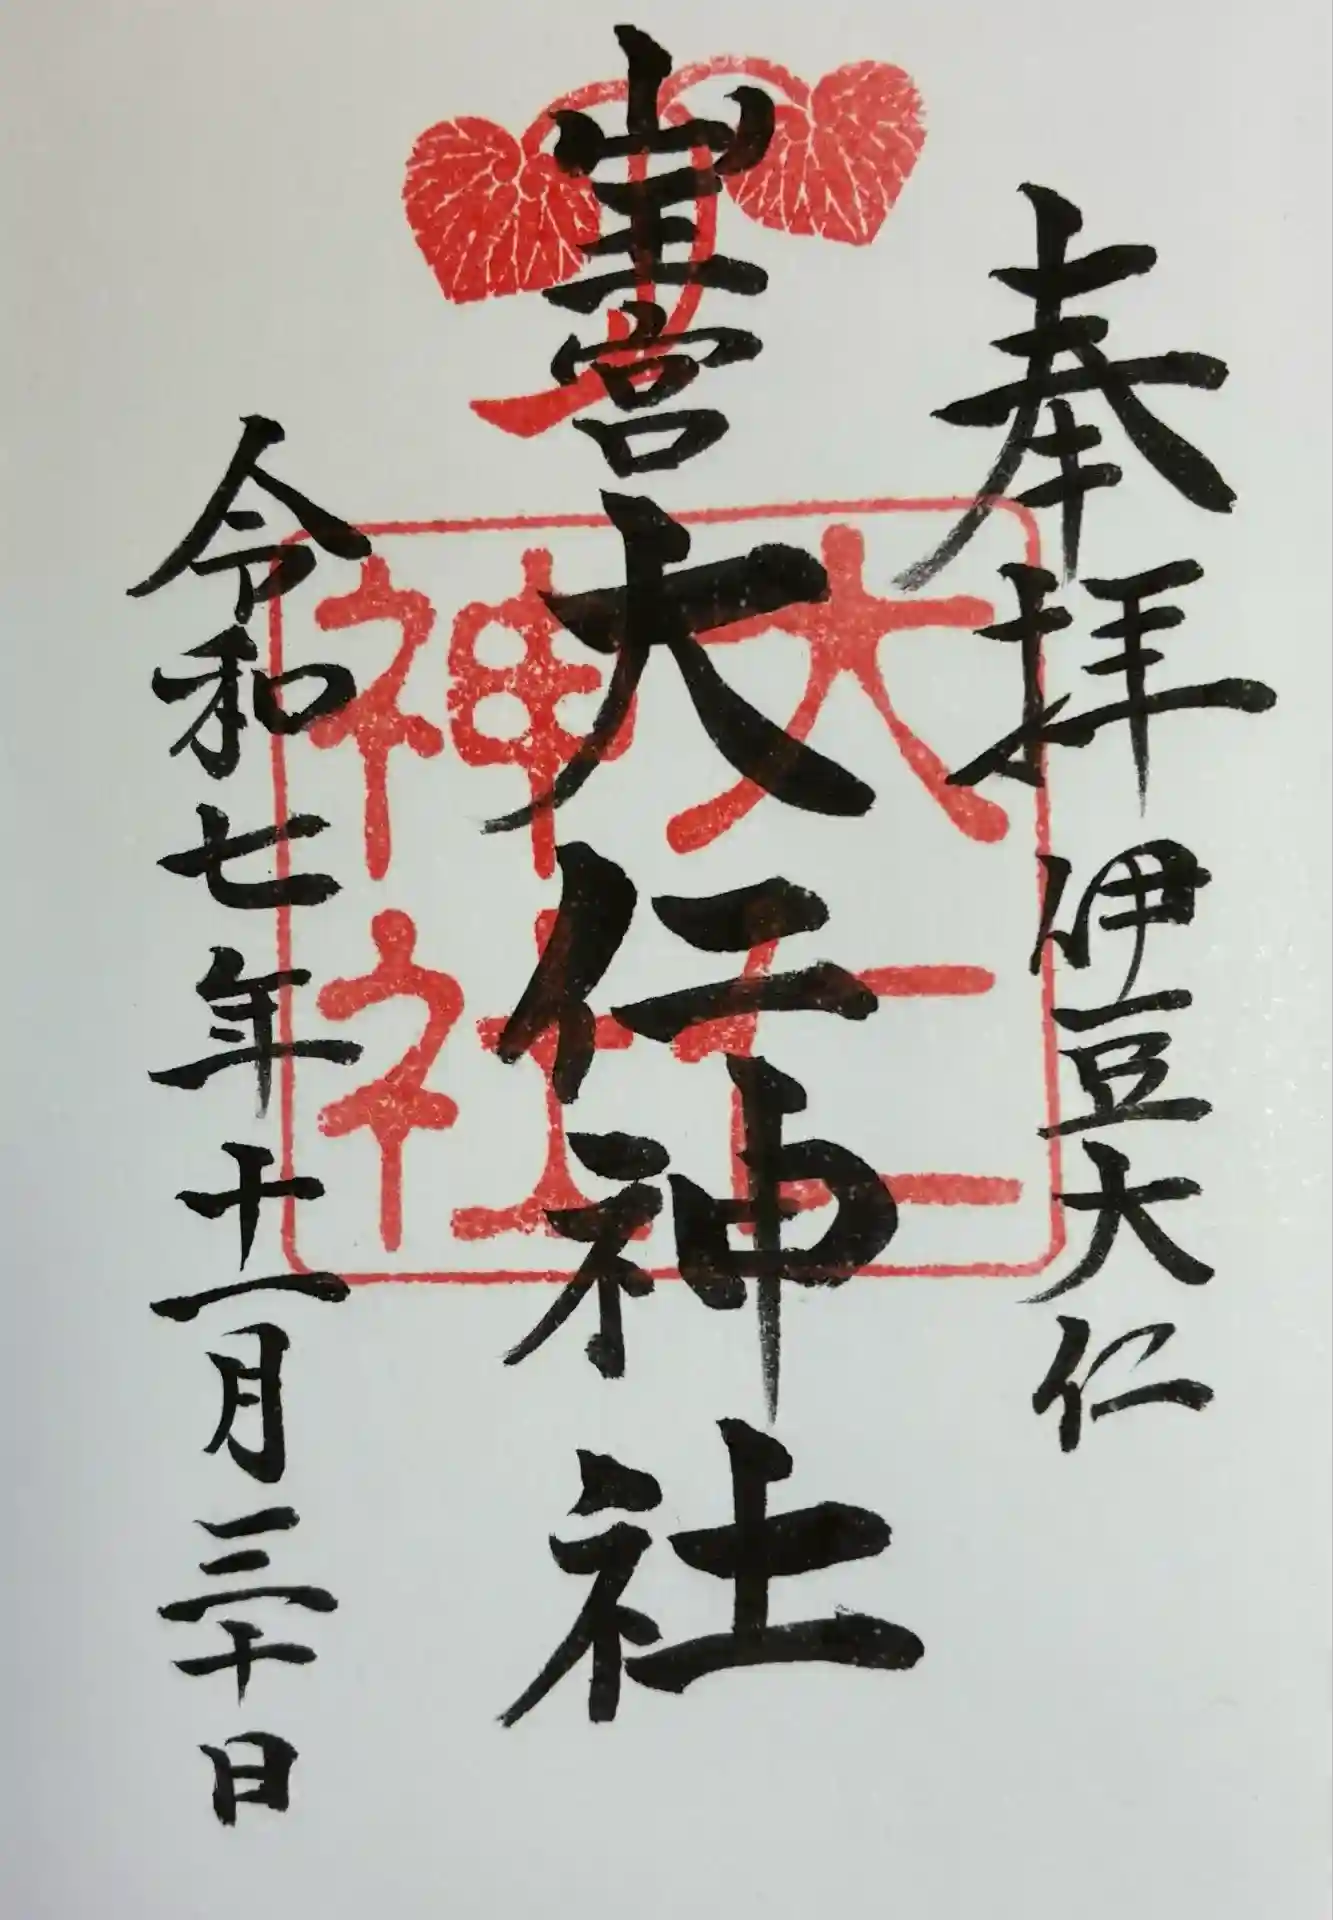 奉拝 伊豆大仁
山王宮大仁神社
令和七年十一月三十日
大仁
神社